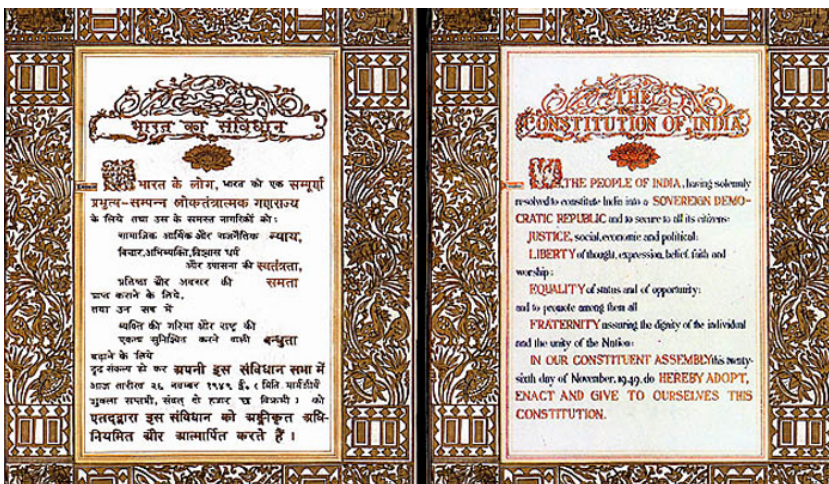 भारत का संविधान
हम भारत के लोग, भारत को एक सम्पूर्ण
प्रभुत्व-सम्पन्न लोकतंत्रात्मक गणराज्य
के लिये तथा उस के समस्त नागरिकों को:
सामाजिक आर्थिक और राजनैतिक न्याय,
विचार, अभिव्यक्ति, विश्वास धर्म
और उपासना की स्वतंत्रता,
प्रतिष्ठा और अवसर की समता
प्राप्त कराने के लिये,
तथा उन सब में
व्यक्ति की गरिमा और राष्ट्र की
एकता सुनिश्चित करने वाली बन्धुता
बढ़ाने के लिये
दृढ़ संकल्प हो कर अपनी इस संविधान सभा में
आज तारीख २६ नवम्बर १९४९ ई. (मिति मार्गशीर्ष
शुक्ला सप्तमी, संवत् दो हजार छ विक्रमी) को
एतद्द्वारा इस संविधान को अङ्गीकृत अधि-
नियमित और आत्मार्पित करते हैं।
THE
CONSTITUTION OF INDIA
WE, THE PEOPLE OF INDIA, having solemnly
resolved to constitute India into a SOVEREIGN DEMO-
CRATIC REPUBLIC and to secure to all its citizens:
JUSTICE, social, economic and political;
LIBERTY of thought, expression, belief, faith and
worship;
EQUALITY of status and of opportunity;
and to promote among them all
FRATERNITY assuring the dignity of the individual
and the unity of the Nation;
IN OUR CONSTITUENT ASSEMBLY this twenty-
sixth day of November, 1949, do HEREBY ADOPT,
ENACT AND GIVE TO OURSELVES THIS
CONSTITUTION.